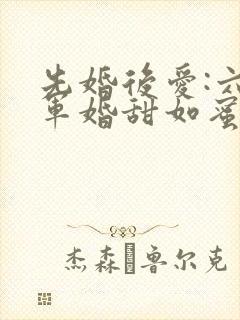 先婚後愛:六
軍婚甜如蜜
杰森·鲁尔克